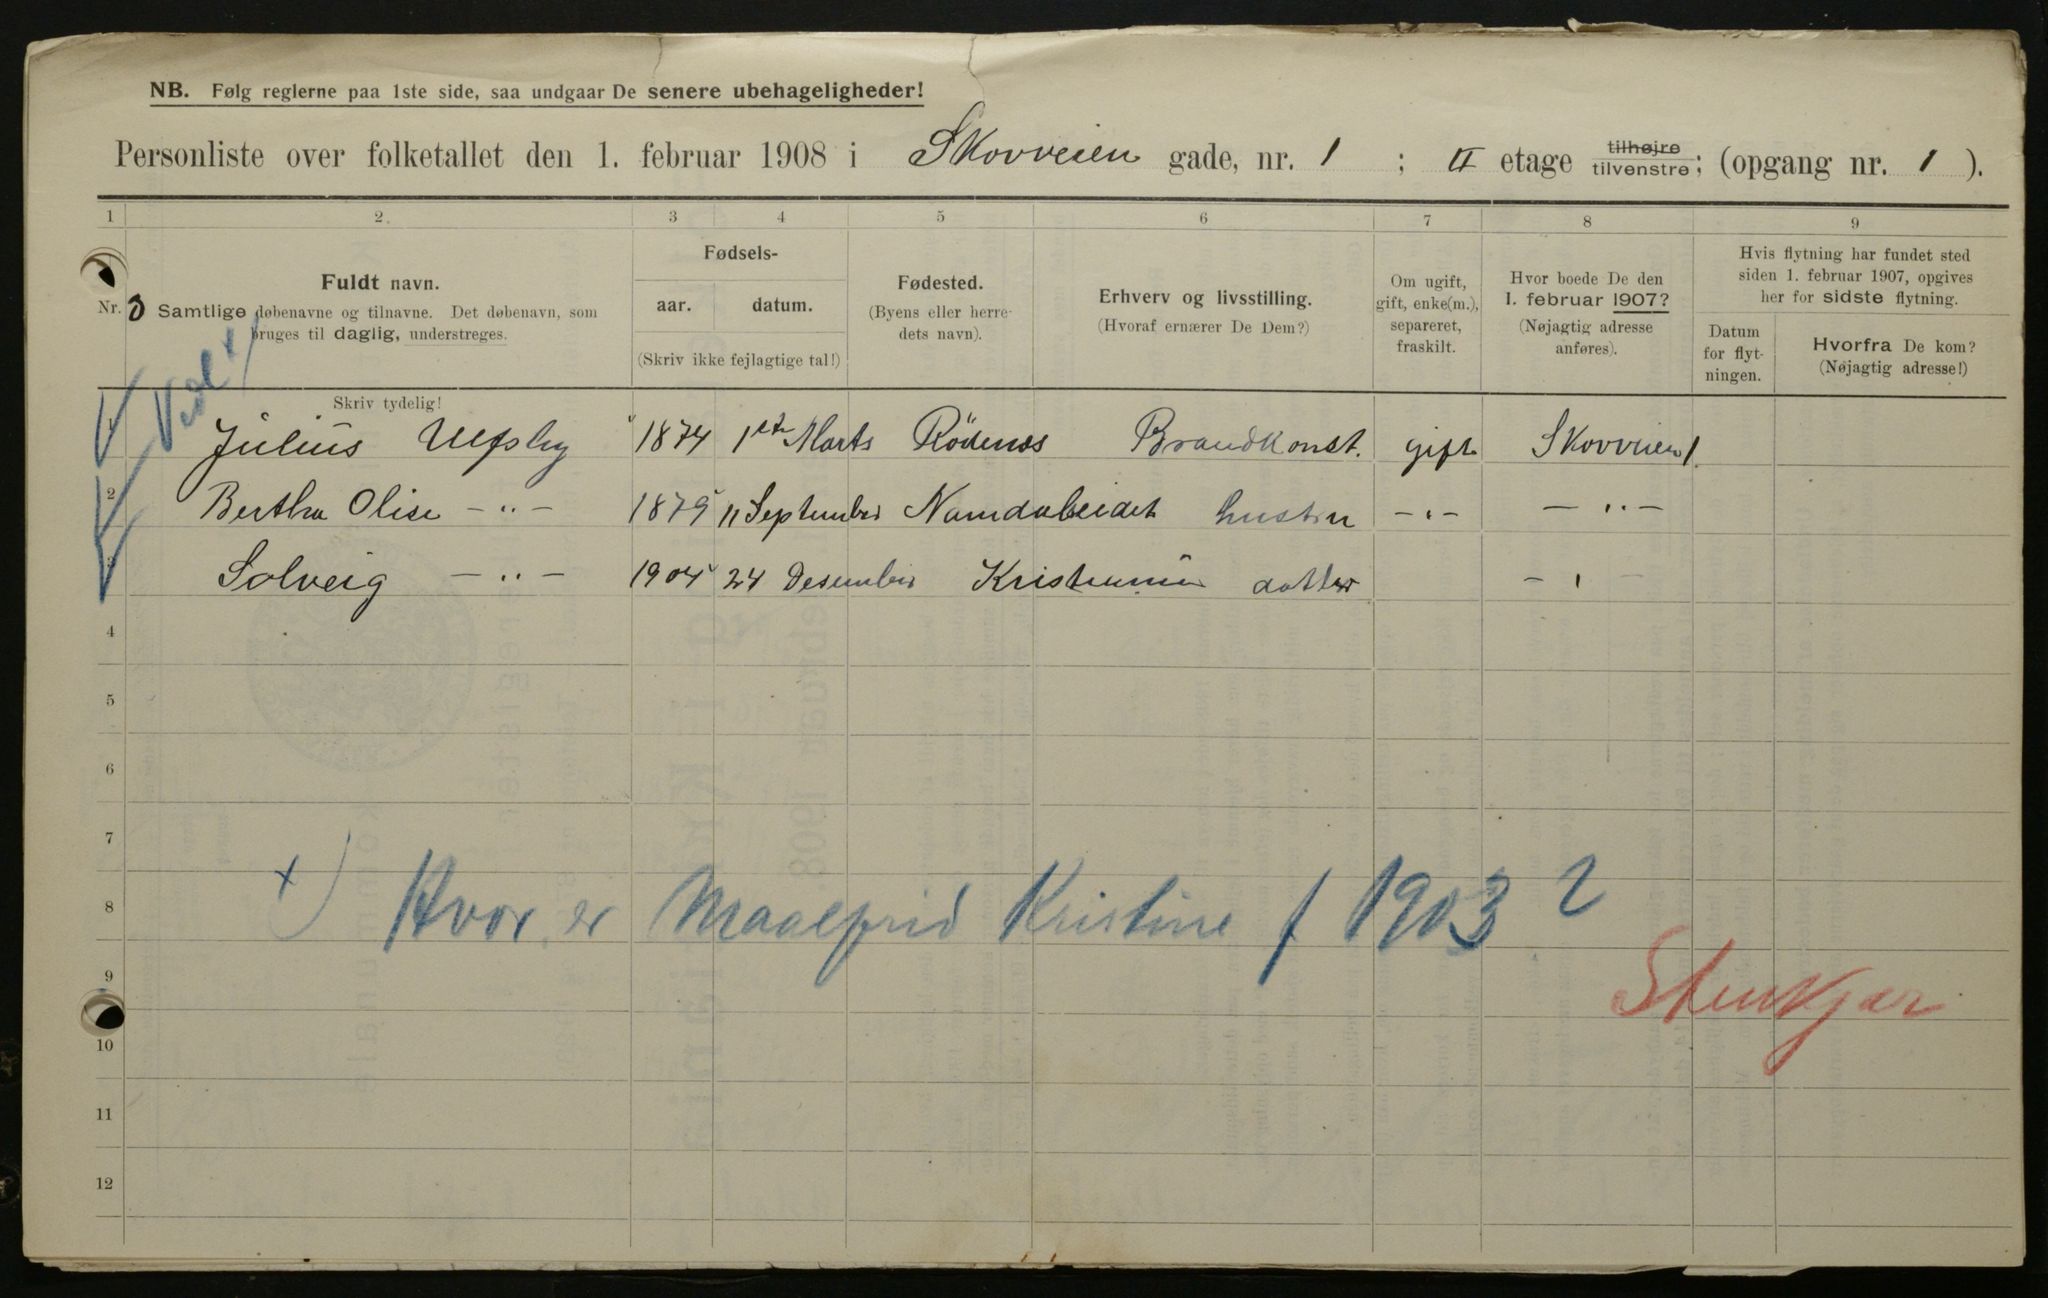 NB. Følg reglerne paa 1ste side, saa undgaar De senere ubehageligheder!
Personliste over folketallet den 1. februar 1908 i Skovveien gade, nr. 1 ; II etage tilhøjre tilvenstre; (opgang nr. 1 ).
1 2. 3 4 5 6 7 8 9
Nr. Fuldt navn.
Samtlige døbenavne og tilnavne. Det døbenavn, som
bruges til daglig, understreges.
Skriv tydelig!
Fødsels-
aar. datum.
(Skriv ikke fejlagtige tal!)
Fødested.
(Byens eller herre-
dets navn).
Erhverv og livsstilling.
(Hvoraf ernærer De Dem?)
Om ugift,
gift, enke(m.),
separeret,
fraskilt.
Hvor boede De den
1. februar 1907?
(Nøjagtig adresse
anføres).
Hvis flytning har fundet sted
siden 1. februar 1907, opgives
her for sidste flytning.
Datum
for flyt-
ningen.
Hvorfra De kom?
(Nøjagtig adresse!)
1 Julius Ulfsby 1874 1ste Marts Rödenes Brandkonst. gift Skovveien 1.
2 Bertha Olise -"- 1879 11 September hustru -"- -"-
3 Solveig -"- 1904 24 Desember Kristiania datter -"-
4
5
6
7
8 +) Hvor er Maalfrid Kristine f 1903?
9 Stenkjær
10
11
12